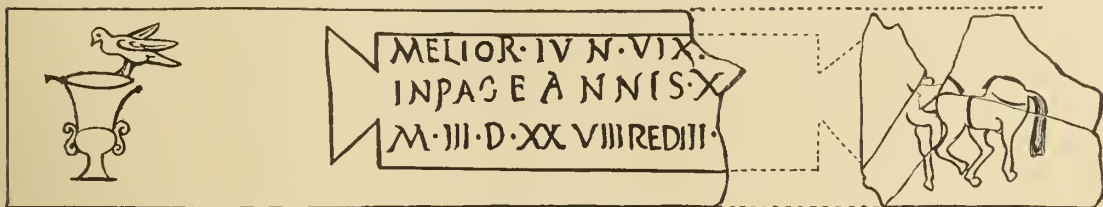 MELIOR·IVN·VIX·
INPACE ANNIS·X
M·III·D·XXVIIIREDIIT·